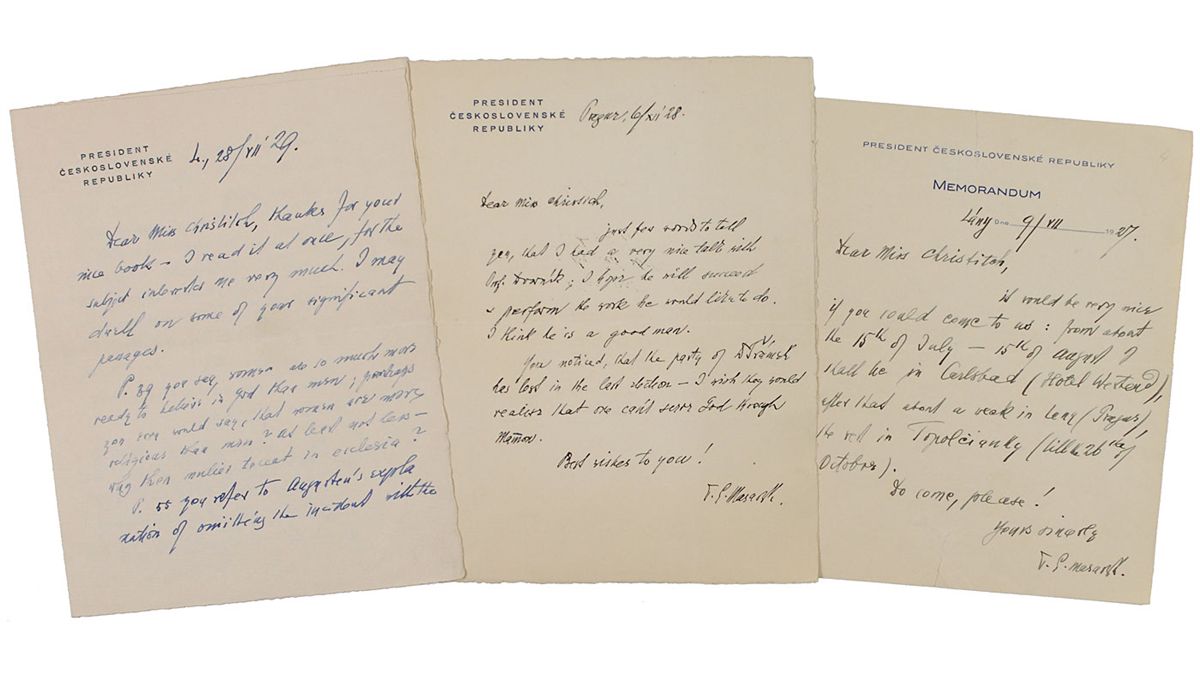 PRESIDENT
ČESKOSLOVENSKÉ
REPUBLIKY
L., 28/VII 29.
Dear Miss Christitch, thanks for your
nice book – I read it at once, for the
subject interests me very much. I may
dwell on some of your significant
passages.
P. 39 you say, women are so much more
ready to believe in god than men; perhaps
you even would say, that women are more
religious than men? At least not less –
why then mulier taceat in ecclesia?
P. 55 you refer to Augusten's expla
nation of omitting the incident with the
PRESIDENT
ČESKOSLOVENSKÉ
REPUBLIKY
Prague, 6/XII 28.
Dear Miss Christich,
just few words to tell
you, that I had a very nice talk with
Prof. Dvorník; I hope he will succeed
perform the work he would like to do.
I think he is a good man.
You noticed, that the party of Šrámek
has lost in the last election – I wish they would
realise that one can't serve God through
Mamon.
Best wishes to you!
T. G. Masaryk.
PRESIDENT ČESKOSLOVENSKÉ REPUBLIKY
4
MEMORANDUM
Lány Dne 9/VII 1927.
Dear Miss Christitch,
it would be very nice
if you could come to us: from about
the 15th of July – 15th of August I
shall be in Carlsbad (Hotel Westend),
after that about a week in Lány (Prague)
the rest in Topolčianky (till the 26th of
October).
Do come, please!
Yours sincerly
T. G. Masaryk.